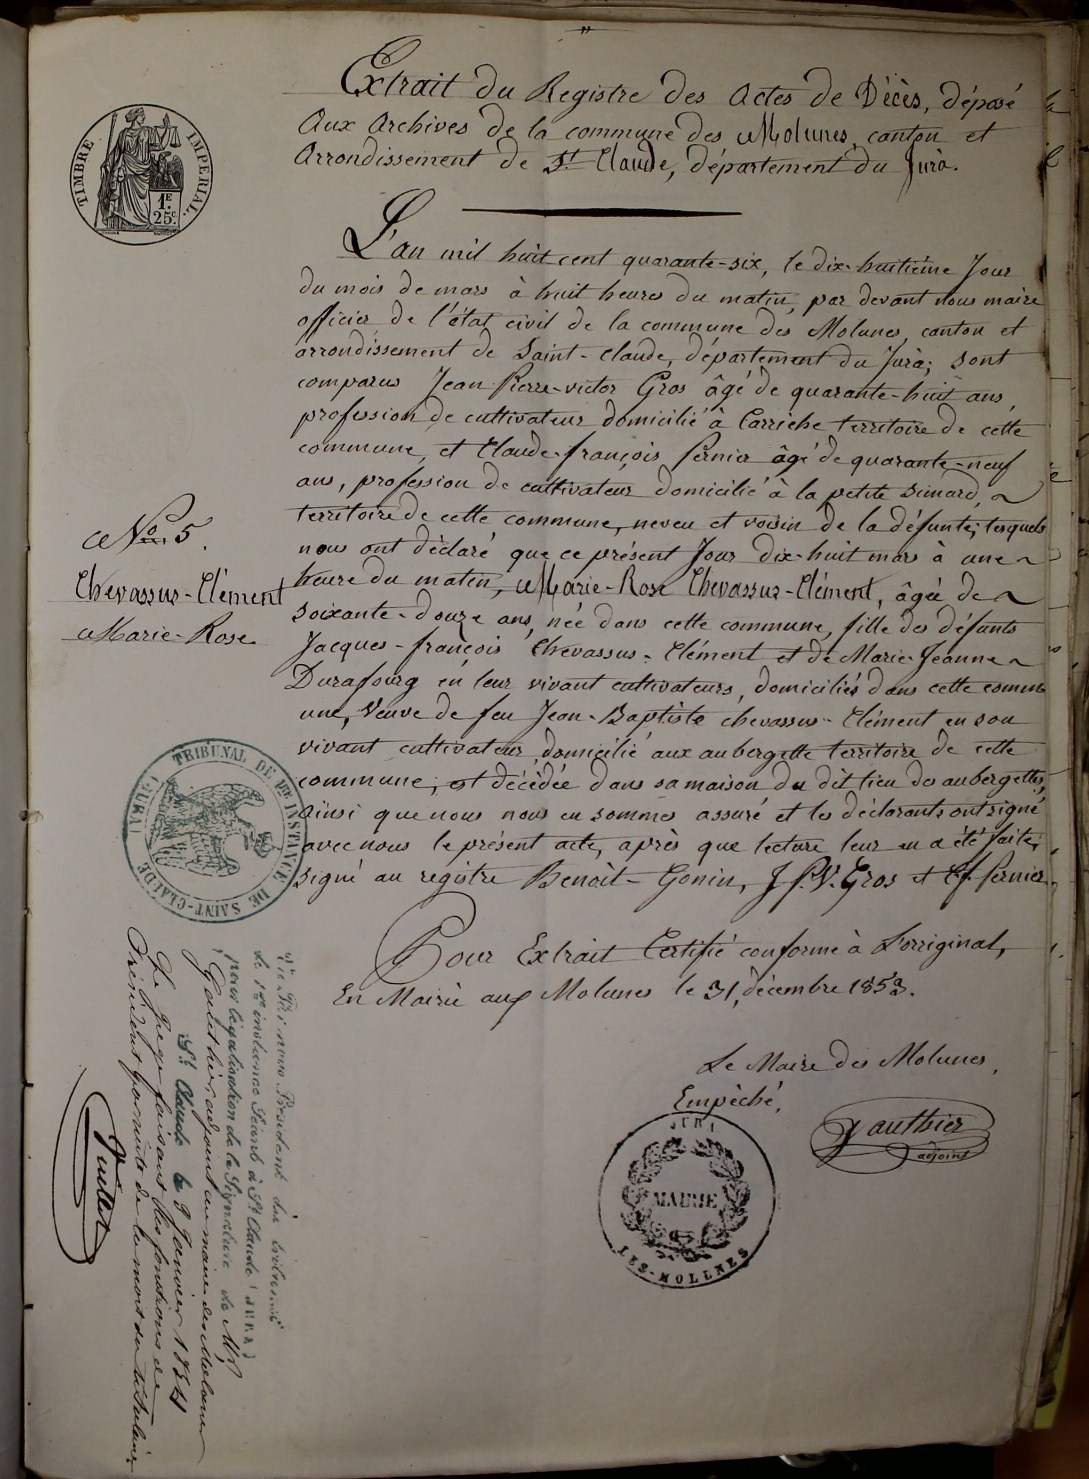 Extrait du Registre des Actes de Décès, déposé
Aux Archives de la commune des Molunes, canton et
Arrondissement de St. Claude, département du Jura.
TIMBRE IMPÉRIAL.
1F.
25c.
L'an mil huit cent quarante-six, le dix-huitième Jour
du mois de mars à huit heures du matin, par devant nous maire
officier de l'état civil de la commune des Molunes, canton et
arrondissement de Saint-Claude, département du Jura; sont
comparus Jean-Pierre-victor Gros âgé de quarante-huit ans,
profession de cultivateur domicilié à Carriche territoire de cette
commune, et Claude-françois Pernier âgé de quarante-neuf
ans, profession de cultivateur domicilié à la petite Simard,
territoire de cette commune, neveu et voisin de la défunte; lesquels
nous ont déclaré que ce présent Jour dix-huit mars à une
heure du matin, Marie-Rose Chevassus-Clément, âgée de
soixante-douze ans, née dans cette commune, fille des défunts
Jacques-françois Chevassus-Clément et de Marie-Jeanne
Durafourg en leur vivant cultivateurs, domiciliés dans cette comm
une, Veuve de feu Jean-Baptiste chevassus-Clément en son
vivant cultivateur, domicilié aux aubergette territoire de cette
commune; est décédée dans sa maison du dit lieu des aubergettes,
ainsi que nous nous en sommes assuré et les déclarants ont signé
avec nous le présent acte, après que lecture leur en a été faite;
signé au registre Benoit-Gonin, J P. V. Gros et Cf. Pernier.
No. 5.
Chevassus-Clément
Marie-Rose
TRIBUNAL DE 1ERE INSTANCE DE SAINT-CLAUDE (JURA)
Pour Extrait Certifié conforme à L'orriginal,
En Mairie aux Molunes le 31, décembre 1853.
Le Maire des Molunes,
Empêché,
Gauthier
adjoint
JURA
MAIRIE
LES-MOLUNES
Vu Par nous Président du tribunal
de 1ere instance Séant à St Claude (Jura)
pour légalisation de la Signature de Mr
Gauthier adjoint au maire des Molunes
St. Claude le 9 Janvier 1854
Le Juge faisant les fonctions de
Président par suite de la mort du titulaire